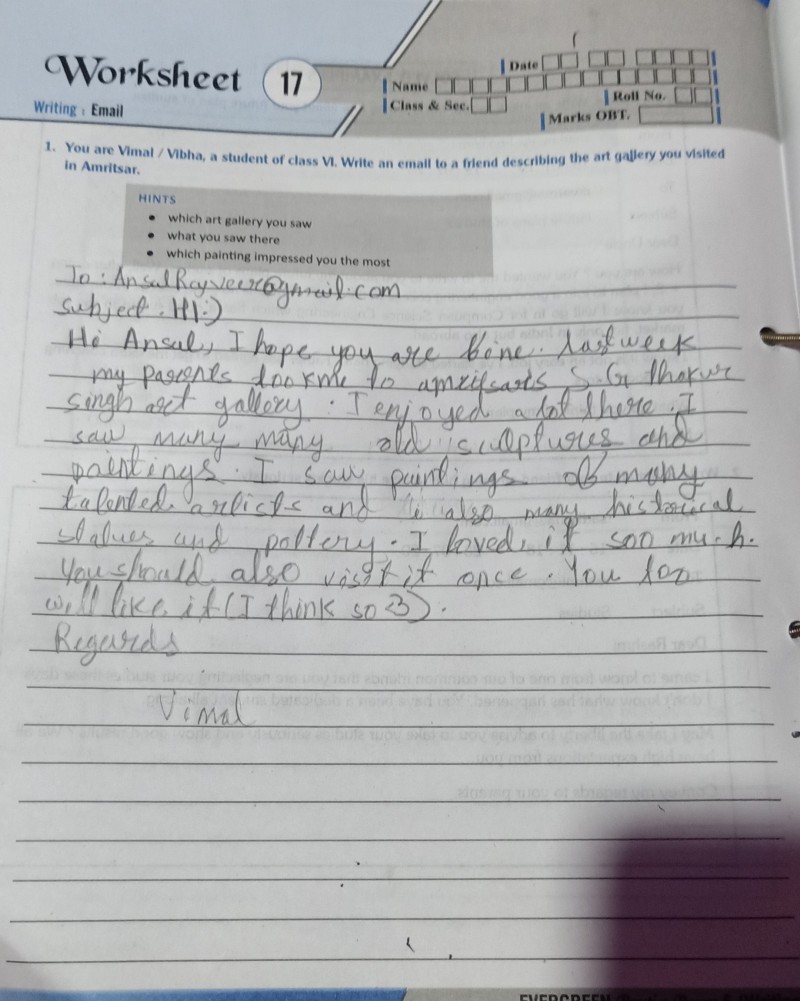 Worksheet 17
Writing : Email
Date
Name
Class & Sec.
Roll No.
Marks OBT.
1. You are Vimal / Vibha, a student of class VI. Write an email to a friend describing the art gallery you visited
in Amritsar.
HINTS
• which art gallery you saw
• what you saw there
• which painting impressed you the most
To : AnsulRayveer@gmail.com
Subject : HI:)
Hi Ansul, I hope you are fine. Last week
my parents took me to amritsars S. G Thakur
singh art gallery. I enjoyed a lot there. I
saw many many old sculptures and
paintings. I saw paintings of many
talented artists and also many historical
statues and pottery. I loved it soo much.
You should also visit it once. You too
will like it (I think so <3).
Regards
Vimal
EVERGREEN